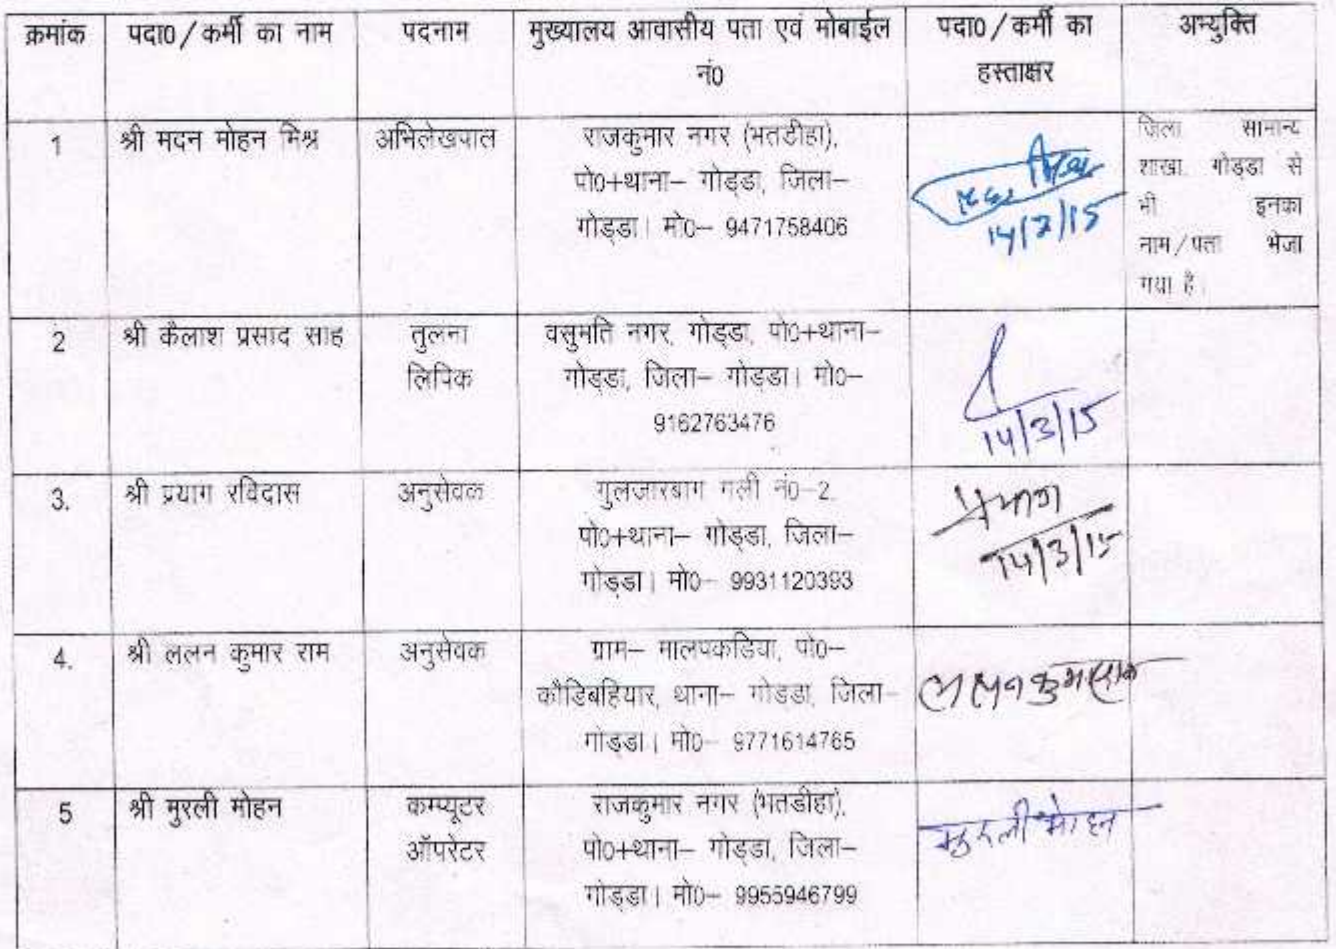 क्रमांक पदा0/कर्मी का नाम पदनाम मुख्यालय आवासीय पता एवं मोबाईल नं0 पदा0/कर्मी का हस्ताक्षर अभ्युक्ति
1 श्री मदन मोहन मिश्र अभिलेखपाल
राजकुमार नगर (भतडीहा),
पो0+थाना– गोड्डा, जिला–
गोड्डा। मो0– 9471758406
14/3/15
जिला सामान्य
शाखा गोड्डा से
भी इनका
नाम/पता भेजा
गया है।
2 श्री कैलाश प्रसाद साह
तुलना
लिपिक
वसुमति नगर, गोड्डा, पो0+थाना–
गोड्डा, जिला– गोड्डा। मो0–
9162763476
14/3/15
3. श्री प्रयाग रविदास अनुसेवक
गुलजारबाग गली नं0–2,
पो0+थाना– गोड्डा, जिला–
गोड्डा। मो0– 9931120393
प्रयाग
14/3/15
4. श्री ललन कुमार राम अनुसेवक
ग्राम– मालपकडिया, पो0–
कौडिबहियार, थाना– गोड्डा, जिला–
गोड्डा। मो0– 9771614765
ललन कुमार राम
5 श्री मुरली मोहन
कम्प्यूटर
ऑपरेटर
राजकुमार नगर (भतडीहा),
पो0+थाना– गोड्डा, जिला–
गोड्डा। मो0– 9955946799
मुरली मोहन